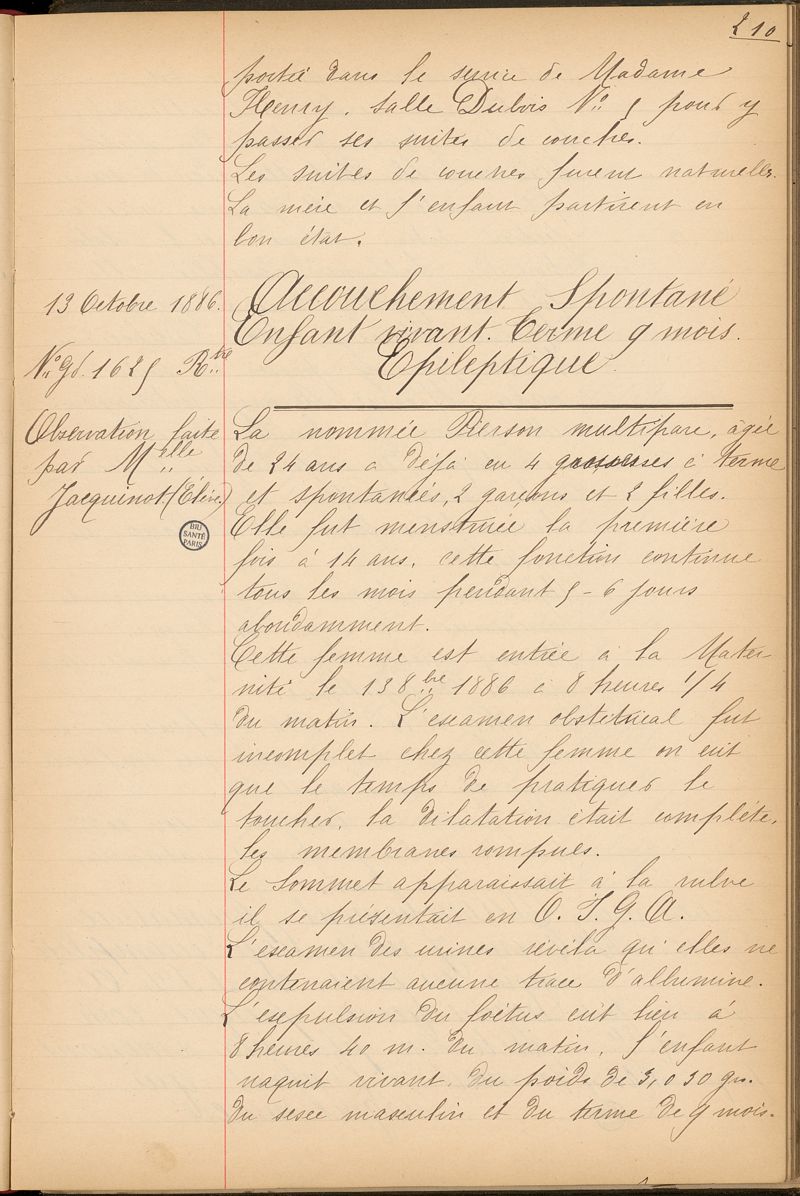 210
porté dans le service de Madame
Henry, salle Dubois N° 5 pour y
passer ses suites de couches.
Les suites de couches furent naturelles.
La mère et l'enfant partirent en
bon état.
13 Octobre 1886.
Accouchement Spontané
Enfant vivant. Terme 9 mois.
Epileptique
N° Gd. 1625 R.tre
Observation faite
par Melle
Jacquinot (Elève.)
BIU
SANTÉ
PARIS
La nommée Pierson multipare, âgée
de 24 ans a déjà eu 4 grossesses à terme
et spontanées, 2 garçons et 2 filles.
Elle fut menstruée la première
fois à 14 ans, cette fonction continue
tous les mois pendant 5 - 6 jours
abondamment.
Cette femme est entrée à la Mater
nité le 13 8bre 1886 à 8 heures 1/4
du matin. L'examen obstétrical fut
incomplet chez cette femme on eut
que le temps de pratiquer le
toucher, la dilatation était complète,
les membranes rompues.
Le Sommet apparaissait à la vulve
il se présentait en O. I. G. A.
L'examen des urines révéla qu'elles ne
contenaient aucune trace d'albumine.
L'expulsion du foetus eut lieu à
8 heures 40 m. du matin, l'enfant
naquit vivant, du poids de 3,030 grs.
du sexe masculin et du terme de 9 mois.